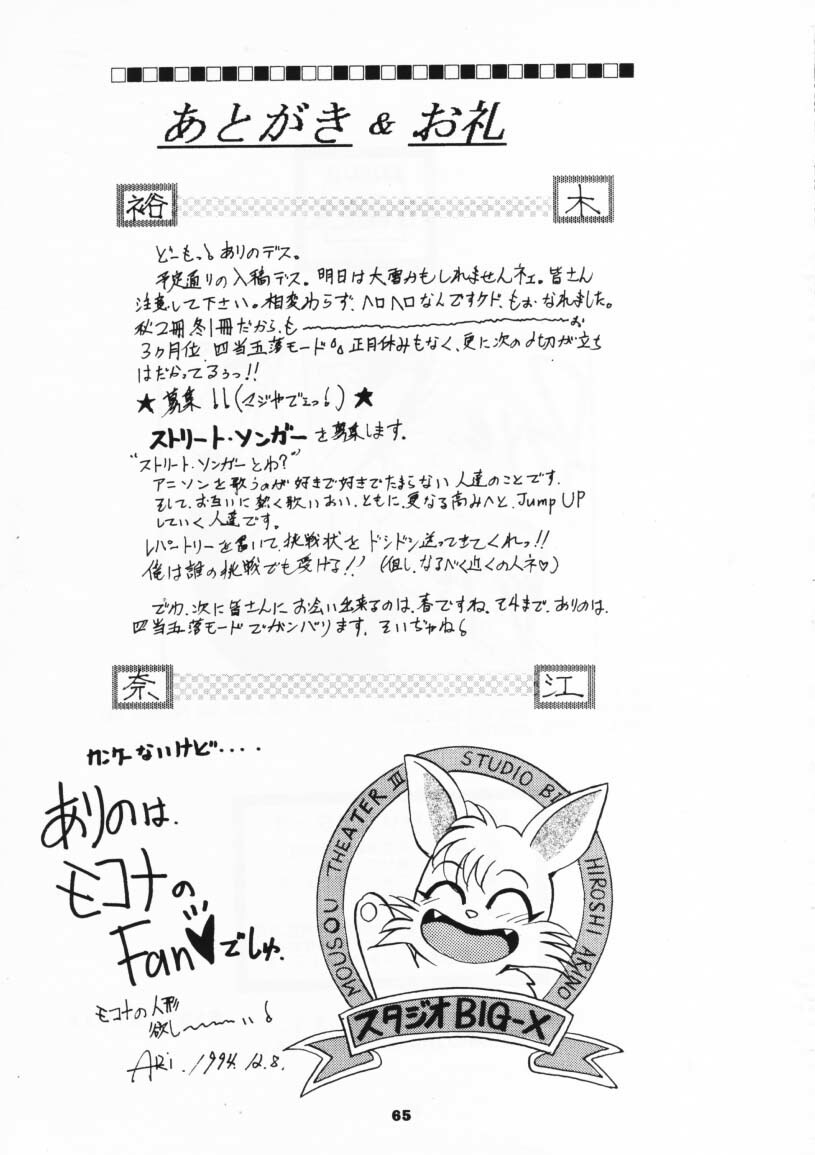 あとがき & お礼
裕 木
どーもっ! ありのデス。
予定通りの入稿デス。明日は大雪かもしれませんネェ。皆さん
注意して下さい。相変わらず、ヘロヘロなんですケド、もぉ、なれました。
秋2冊冬1冊だから、も〜〜〜〜〜お
3ヶ月位、四当五落モード。正月休みもなく、更に次の〆切が立ち
はだかってるぅっ!!
★募集!!(マジやでェっ!)★
ストリート・ソンガーを募集します。
"ストリート・ソンガーとわ?"
アニソンを歌うのが好きで好きでたまらない人達のことです。
そして、お互いに熱く歌いあい、ともに、更なる高みへと、Jump UP
していく人達です。
レパートリーを書いて、挑戦状をドシドシ送ってきてくれっ!!
俺は誰の挑戦でも受ける!! (但し、なるべく近くの人ネ♡)
でわ、次に皆さんにお会い出来るのは、春ですね。それまで、ありのは、
四当五落モードでガンバります。そいぢゃね!
奈 江
カンケーないけど‥‥
ありのは、
モコナの
Fan♥でしゅ。
モコナの人形
欲し〜〜〜い!
ARI. 1994.12.8.
MOUSOU THEATER III STUDIO BI HIROSHI ARINO
スタジオBIG-X
65